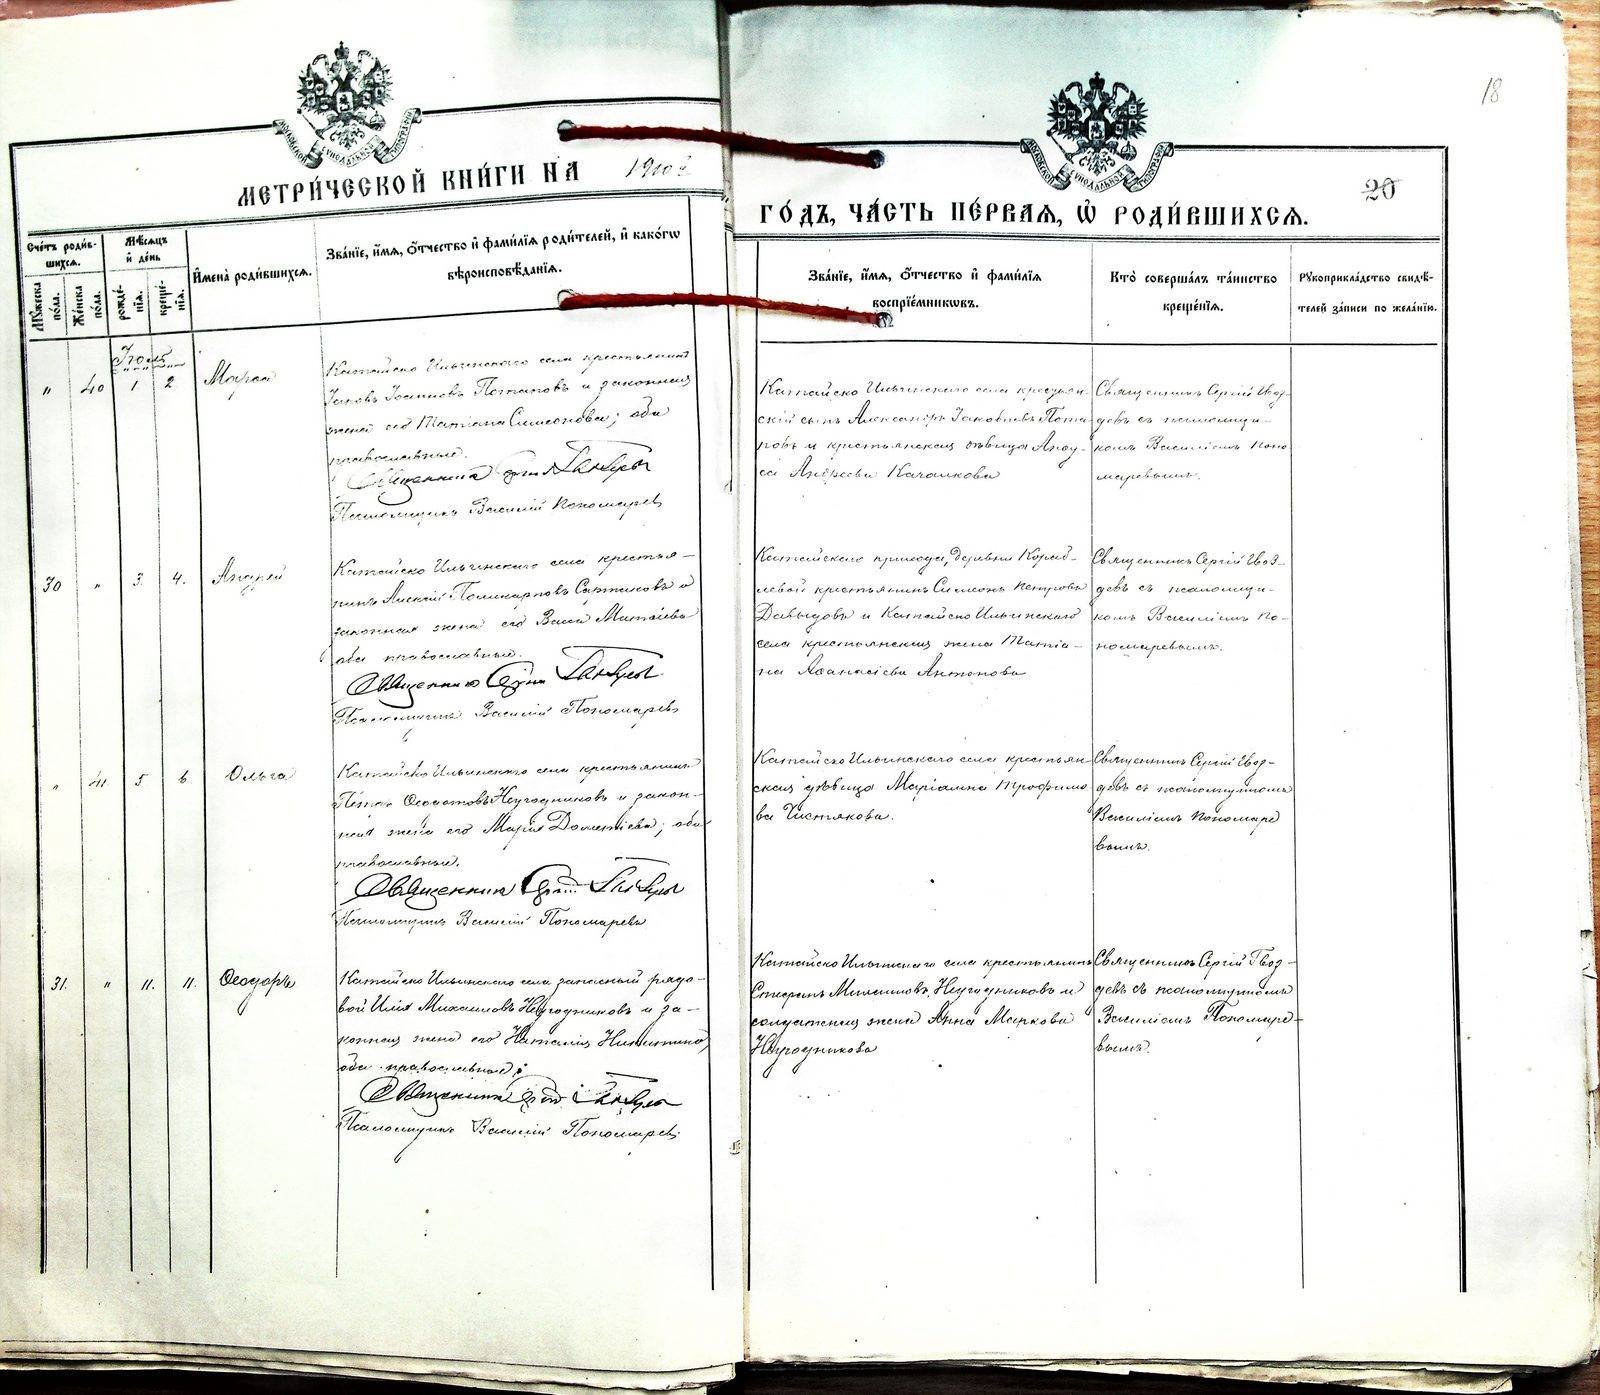 МОСКОВСКОЙ СѴНОДАЛЬНОЙ ТИПОГРАФІИ
МОСКОВСКОЙ СѴНОДАЛЬНОЙ ТИПОГРАФІИ
18
20
МЕТРИ́ЧЕСКОЙ КНИ́ГИ НА 1910й
ГО́ДЪ, ЧА́СТЬ ПЕ́РВАЯ, Ѡ РОДИ́ВШИХСЯ.
Сче́тъ роди́в-
шихся.
Мѣ́сяцъ
и де́нь
Мꙋжеска
пола.
Же́нска
пола.
рожде́-
нія.
креще́-
нія.
И́мена̀ роди́вшихся.
Зва́ніе, и́мя, ѻ́тчество и фами́лія роди́телей, и како́гѡ
вѣроисповѣ́данія.
Зва́ніе, и́мя, ѻ́тчество и фами́лія
воспріе́мникѡвъ.
Кто̀ соверша́лъ та́инство
креще́нія.
Рꙋкоприкла́дство свидѣ́-
телей за́писи по жела́нію.
Іюль
" 40 1 2
Катайско Ильинскаго села крестьянинъ
Іаковъ Іоанновъ Потаповъ и законная
жена его Татіана Симеонова; оба
православные.
Священникъ Сергій Гвоздевъ
Псаломщикъ Василій Пономаревъ
Катайско Ильинскаго села крестьян-
скій сынъ Александръ Іаковлевъ Пота-
повъ и крестьянская дѣвица
Андреева Качалкова
Священникъ Сергій Гвоз-
девъ съ псаломщи-
комъ Василіемъ Поно-
маревымъ.
30 " 3. 4. Андрей
Катайско Ильинскаго села крестья-
нинъ Алексій Поликарповъ и
законная жена его
оба православные.
Священникъ Сергій Гвоздевъ
Псаломщикъ Василій Пономаревъ
Катайскаго прихода, деревни
крестьянинъ Симеонъ Петровъ
Давыдовъ и Катайско Ильинскаго
села крестьянская жена Татіа-
на Аѳанасіева Антонова
Священникъ Сергій Гвоз-
девъ съ псаломщи-
комъ Василіемъ По-
номаревымъ.
" 41 5 6 Ольга
Катайско Ильинскаго села крестьянинъ
Петръ Ѳеодотовъ Неугодниковъ и закон-
ная жена его Марія Дометіева; оба
православные.
Священникъ Сергій Гвоздевъ
Псаломщикъ Василій Пономаревъ
Катайско Ильинскаго села крестьян-
ская дѣвица Маріамна Трофимо-
ва Чистякова.
Священникъ Сергій Гвоз-
девъ съ псаломщикомъ
Василіемъ Пономаре
вымъ.
31. " 11. 11. Ѳеодоръ
Катайско Ильинскаго села запасный рядо-
вой Илія Михаиловъ Неугодниковъ и за-
конная жена его Наталія Никитина,
оба православные.
Священникъ Сергій Гвоздевъ
Псаломщикъ Василій Пономаревъ
Катайско Ильинскаго села крестьянинъ
Стефанъ Михаиловъ Неугодниковъ и
солдатская жена Анна Маркова
Неугодникова
Священникъ Сергій Гвоз-
девъ съ псаломщикомъ
Василіемъ Пономаре-
вымъ.